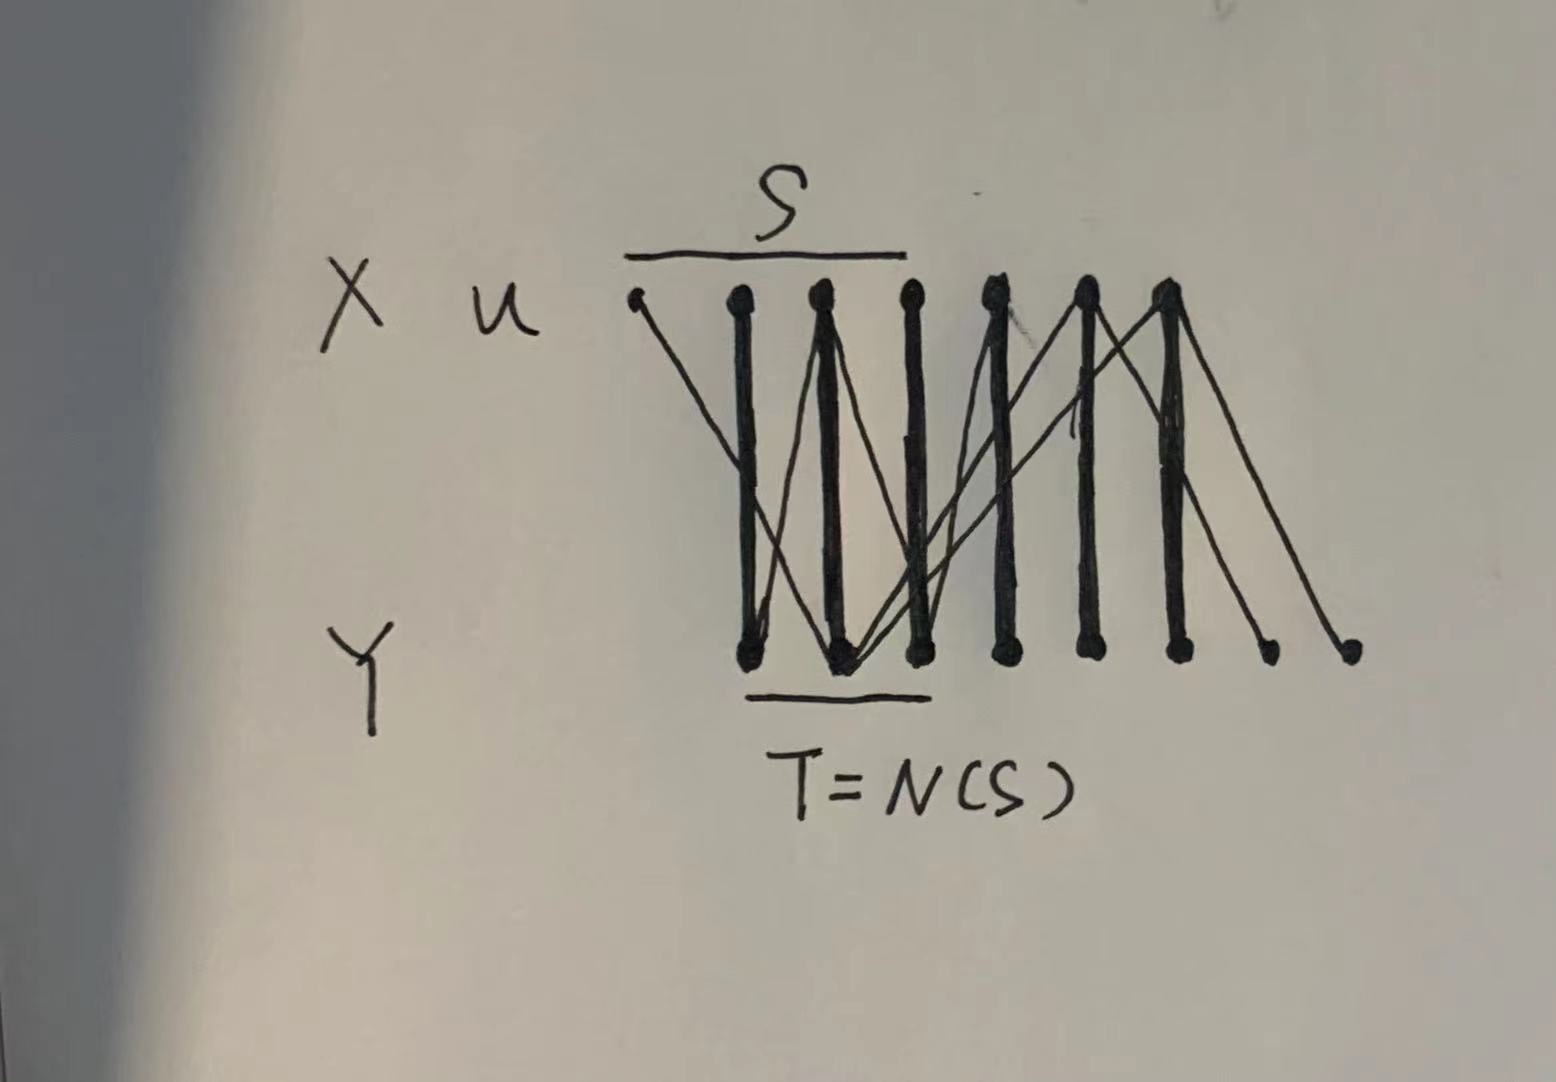 S
X u
Y
T=N(S)